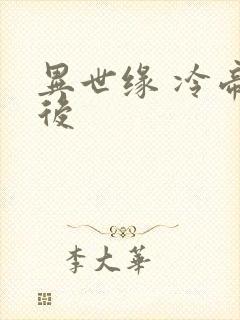 異世缘 冷帝
後
李大華